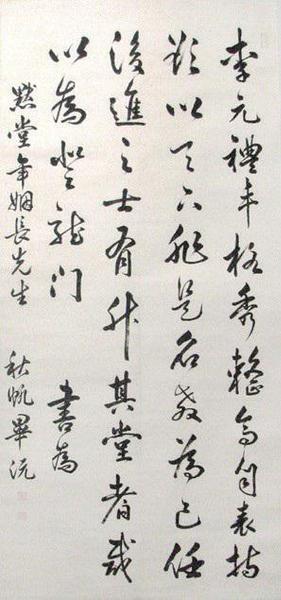 李元禮丰格秀整高自表持
欲以天下非是名教為己任
後進之士有升其堂者咸
以為登龍门 書為
默堂年姻長先生 秋帆畢沅